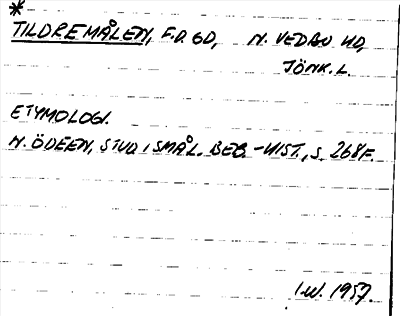 *
TILDREMÅLEN, F.D. GD, N. VEDBO HD,
JÖNK. L.
ETYMOLOGI.
N. ÖDEEN, STUD I SMÅL. BEB.-HIST., S. 268F.
I.W. 1957.